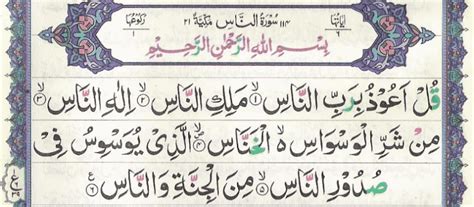 اٰیَاتُهَا ٦ ۱۱۴ سُوْرَةُ النَّاسِ مَكِّيَّةٌ ۲۱ رُكُوْعُهَا ۱
بِسْمِ اللّٰهِ الرَّحْمٰنِ الرَّحِيْمِ
قُلْ اَعُوْذُ بِرَبِّ النَّاسِ ۙ﴿۱﴾ مَلِكِ النَّاسِ ۙ﴿۲﴾ اِلٰهِ النَّاسِ ۙ﴿۳﴾
مِنْ شَرِّ الْوَسْوَاسِ ۙ۬ الْخَنَّاسِ ۪ۙ﴿۴﴾ الَّذِیْ یُوَسْوِسُ فِیْ
صُدُوْرِ النَّاسِ ۙ﴿۵﴾ مِنَ الْجِنَّةِ وَ النَّاسِ ﴿۶﴾ ع